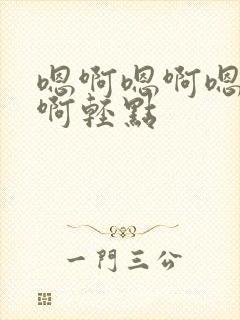 嗯啊嗯啊嗯
啊輕點
一門三公